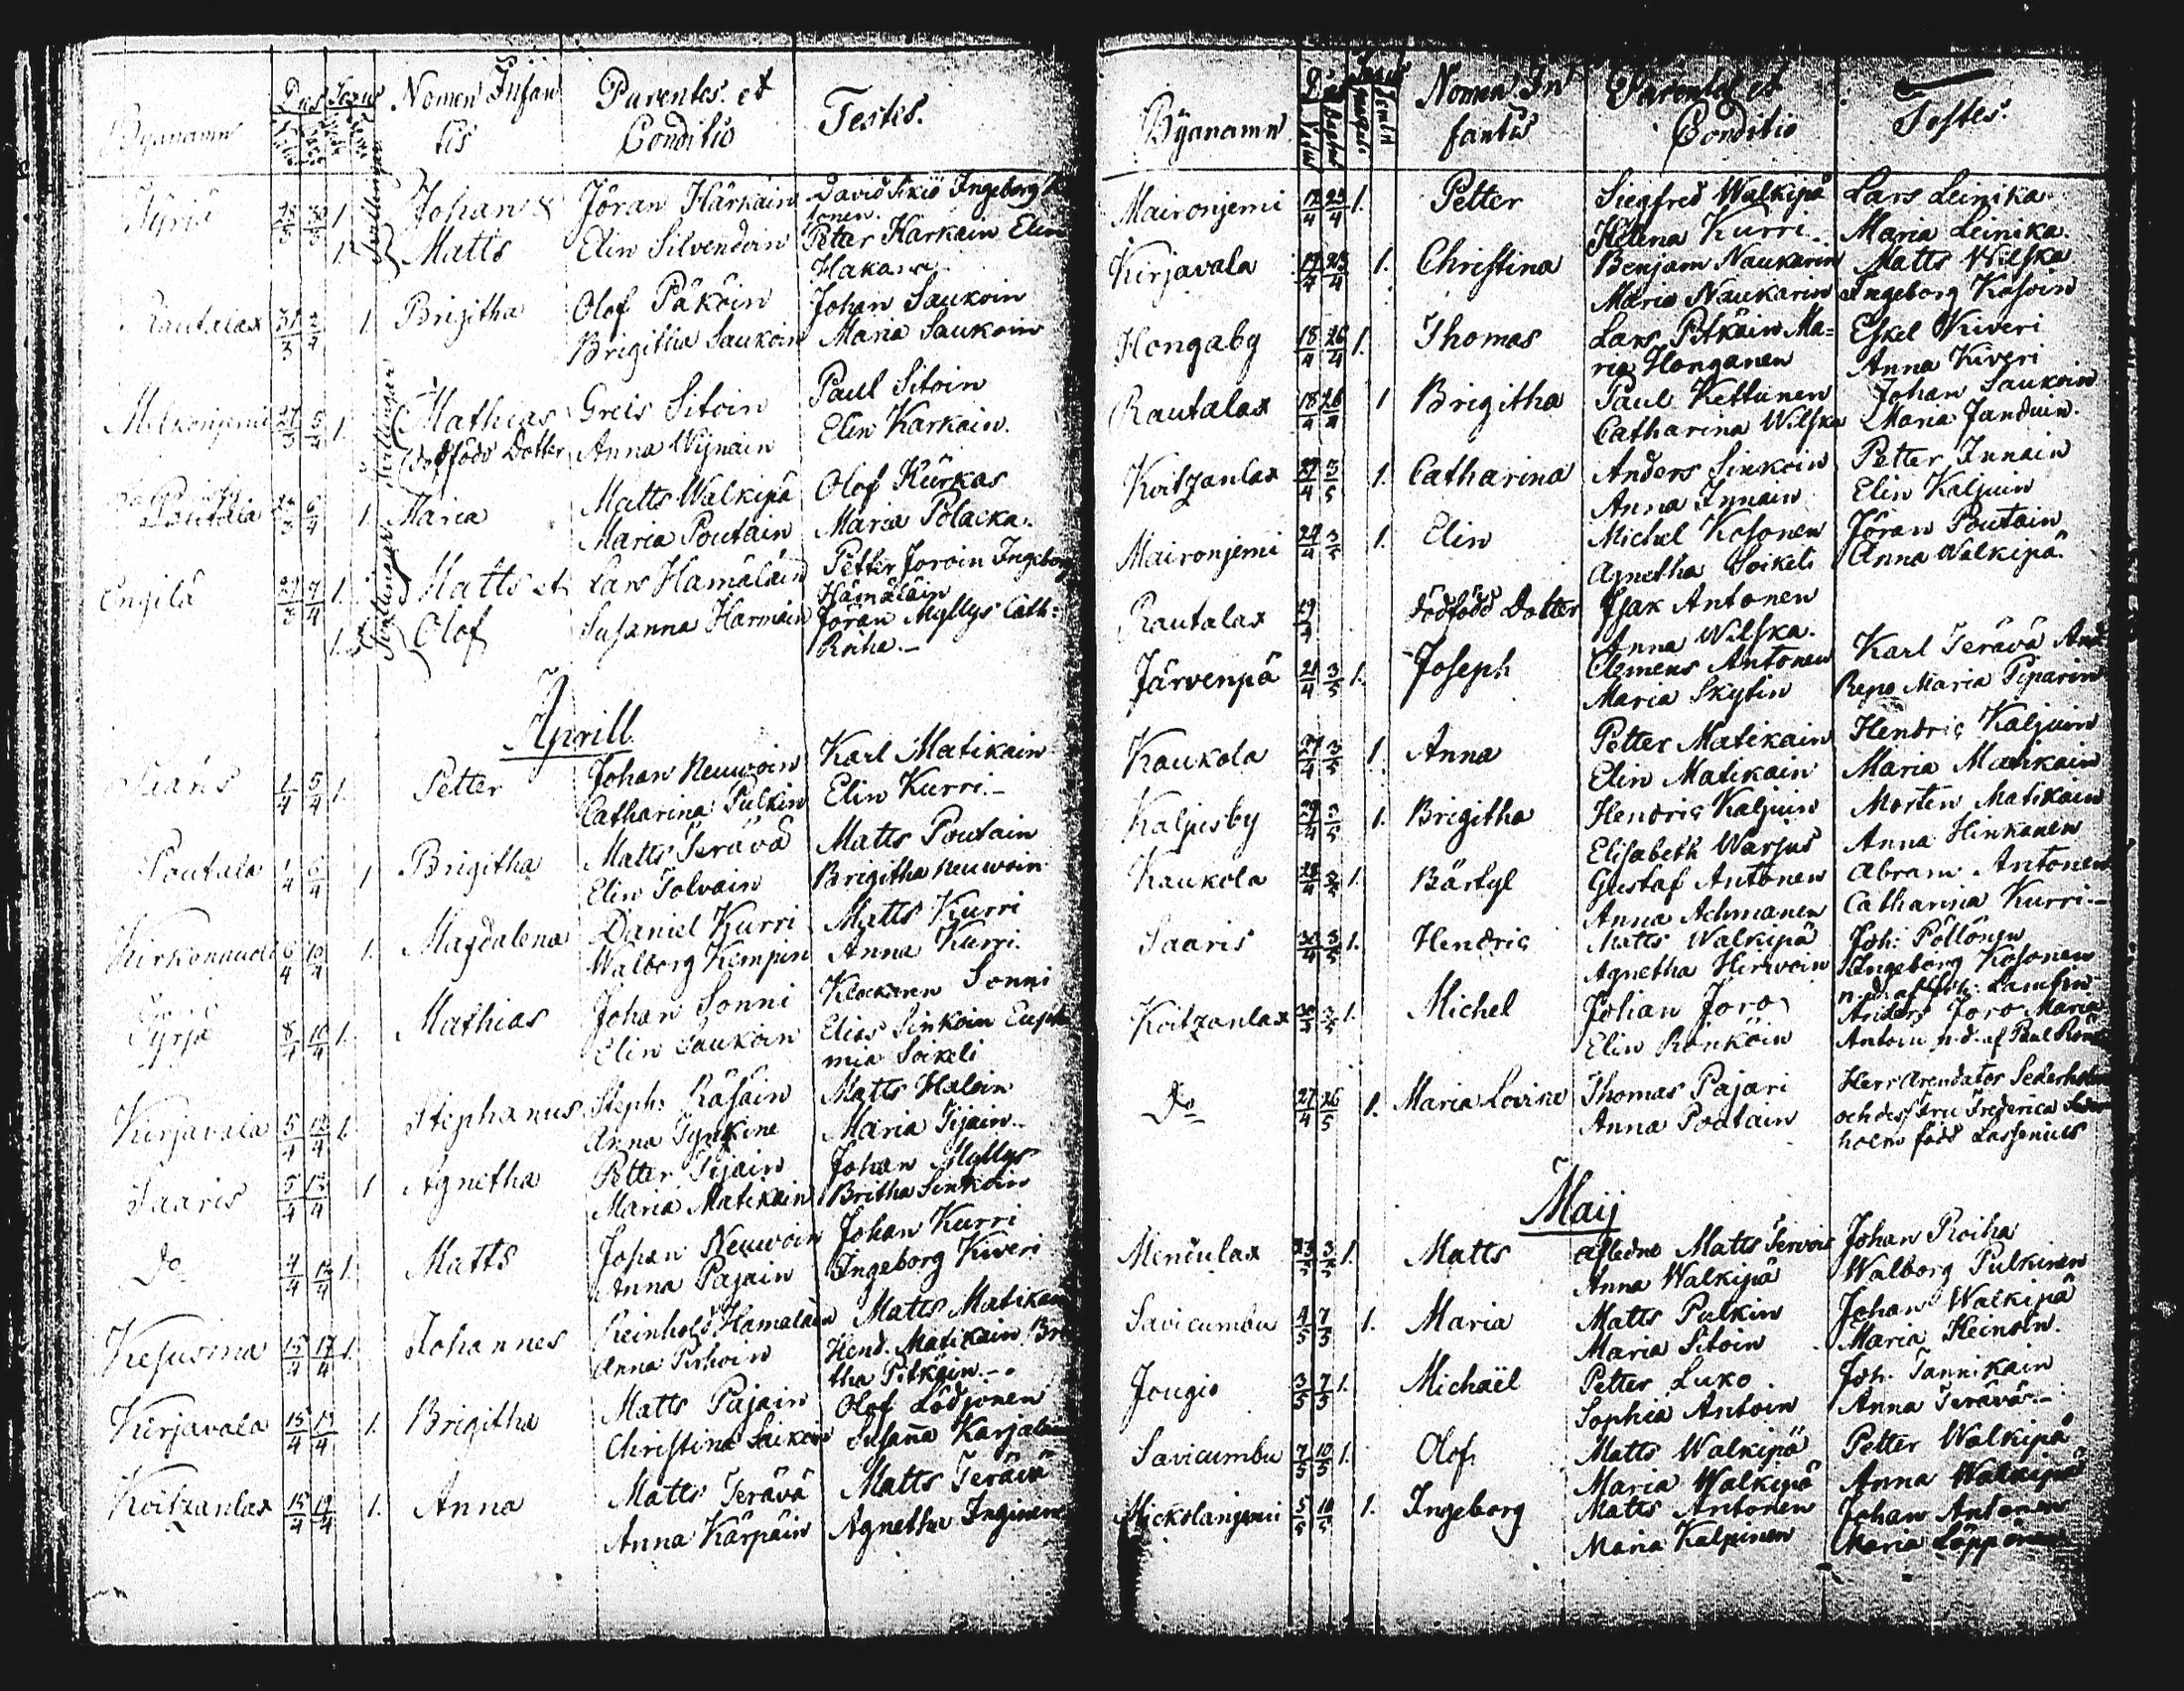 Byanamn Dies Sexus Nomen Infan Parentes et Testes.
tis Conditio
Tyris 25/3 30/3 1. Johan & Jöran Härkäin David Ikiö Ingeborg
1. Matts Elin Silvendoin Petter Härkäin Elin
Hakana
Rautalax 31/3 2/4 1 Brigitha Olof Päköin Johan Saukoin
Brigitha Saukoin Maria Saukoin
27/3 5/4 1. Mathias Greis Sitoin Paul Sitoin
dödfödd Dotter Anna Wijnain Elin Karkain.
Poutala 6/4 1. Maria Matts Walkipä Olof Kürkas
Maria Poutain Maria Polacka.
Engilä 29/3 7/4 1. Matts et Lars Hamäläin Petter Joroin Ingeborg
Hämäläin
1. Olof Susanna Harmain Jöran Myllys Cath:
Roiha.
Aprill
Saaris 1/4 5/4 1. Petter Johan Neuwoin Karl Matikain
Catharina Pulkin Elin Kurri.
Poutala 1/4 6/4 1 Brigitha Matts Terävä Matts Poutain
Elin Tolvain Brigitha Neuwoin
6/4 10/4 1. Magdalena Daniel Kurri Matts Kurri
Walborg Kempin Anna Kurri.
Tyrjä 8/4 10/4 1. Mathias Johan Sonni Klockaren Sonni
Elin Saukoin Elias Sinkoin Euph
mia Soikeli
Kirjavala 5/4 12/4 1. Stephanus Steph: Räsäin Matts Haloin
Anna Tynkine Maria Tijain.
Saaris 5/4 12/4 1 Agnetha Petter Tijain Johan Myllys
Maria Matikain Britha Sinkoin
Do 4/4 12/4 1. Matts Johan Neuwoin Johan Kurri
Anna Pajain Ingeborg Kiveri
Kesusima 15/4 17/4 1. Johannes Reinhold Hamaläin Matts Matikain
Anna Pirhoin Hend. Matikain Bri
tha Pitkäin.
Kirjavala 15/4 19/4 1. Brigitha Matts Pajain Olof Lödjönen
Christina Saikoin Susanna Karjalain
Koitzanlax 15/4 19/4 1. Anna Matts Terävä Matts Terävä
Anna Kärpäin Agnetha Inginen
Byanamn Dies Sexus Nomen In Parentes et Testes.
fantis Conditio
Maironjemi 17/4 23/4 1. Petter Siegfred Walkipä Lars Leinika.
Helena Kurri. Maria Leinika.
Kirjavala 17/4 23/4 1. Christina Benjam Naukarin Matts Wilska
Maria Naukarin Ingeborg Kosoin
Hongaby 18/4 26/4 1. Thomas Lars Pitkäin Ma= Eskel Kiveri
ria Honganen Anna Kiveri
Rautalax 18/4 26/4 1 Brigitha Paul Kettunen Johan Saukoin
Catharina Wilska Maria Janduin.
Koitzanlax 27/4 3/5 1. Catharina Anders Sinkoin Petter Innain
Anna Innain Elin Kaljuin
Maironjemi 24/4 3/5 1. Elin Michel Kosonen Jöran Poutain
Agnetha Soikeli Anna Walkipä.
Rautalax 29/4 dödfödd Dotter Isak Antonen
Anna Wilska.
Järvenpä 21/4 3/5 1. Joseph Clemens Antonen Karl Terävä And
Maria Skytin Repo Maria Piparin
Kaukola 27/4 3/5 1 Anna Petter Matikain Hendric Kaljuin
Elin Matikain Maria Matikain
Kaljusby 29/4 3/5 1. Brigitha Hendric Kaljuin Morten Matikain
Elisabeth Warjus Anna Hinkanen
Kaukola 28/4 3/5 1. Bärtyl Gustaf Antonen Abram Antonen
Anna Achmanen Catharina Kurri.
Saaris 30/4 3/5 1. Hendric Matts Walkipä Joh: Pöllönen
Agnetha Hirwoin Ingeborg Kosonen
Koitzanlax 30/3 3/5 1. Michel Johan Joro Anders Joro Maria
Elin Rönköin Antoin n.d. af Paul
Do 27/4 26/5 1. Maria Lovisa Thomas Pajari Herr Arendator Sederholm
Anna Poutain och dess Fru Frederica Seder
holm född Lassenius
Maij
Menculax 23/5 3/5 1. Matts Afledne Matts Tervois Johan Roiha
Anna Walkipä Walborg Pulkinen
Savicumbu 4/5 7/5 1. Maria Matts Pulkin Johan Walkipä
Maria Sitoin Maria Heinoin.
Jougio 3/5 7/5 1. Michaël Petter Luko. Joh. Tannikain
Sophia Antoin Anna Terävä.
Savicumbu 7/5 10/5 1. Olof Matts Walkipä Petter Walkipä
Maria Walkipä Anna Walkipä
Mickolanjemi 5/5 10/5 1. Ingeborg Matts Antonen Johan Antonen
Maria Kaljunen Maria Löppönen